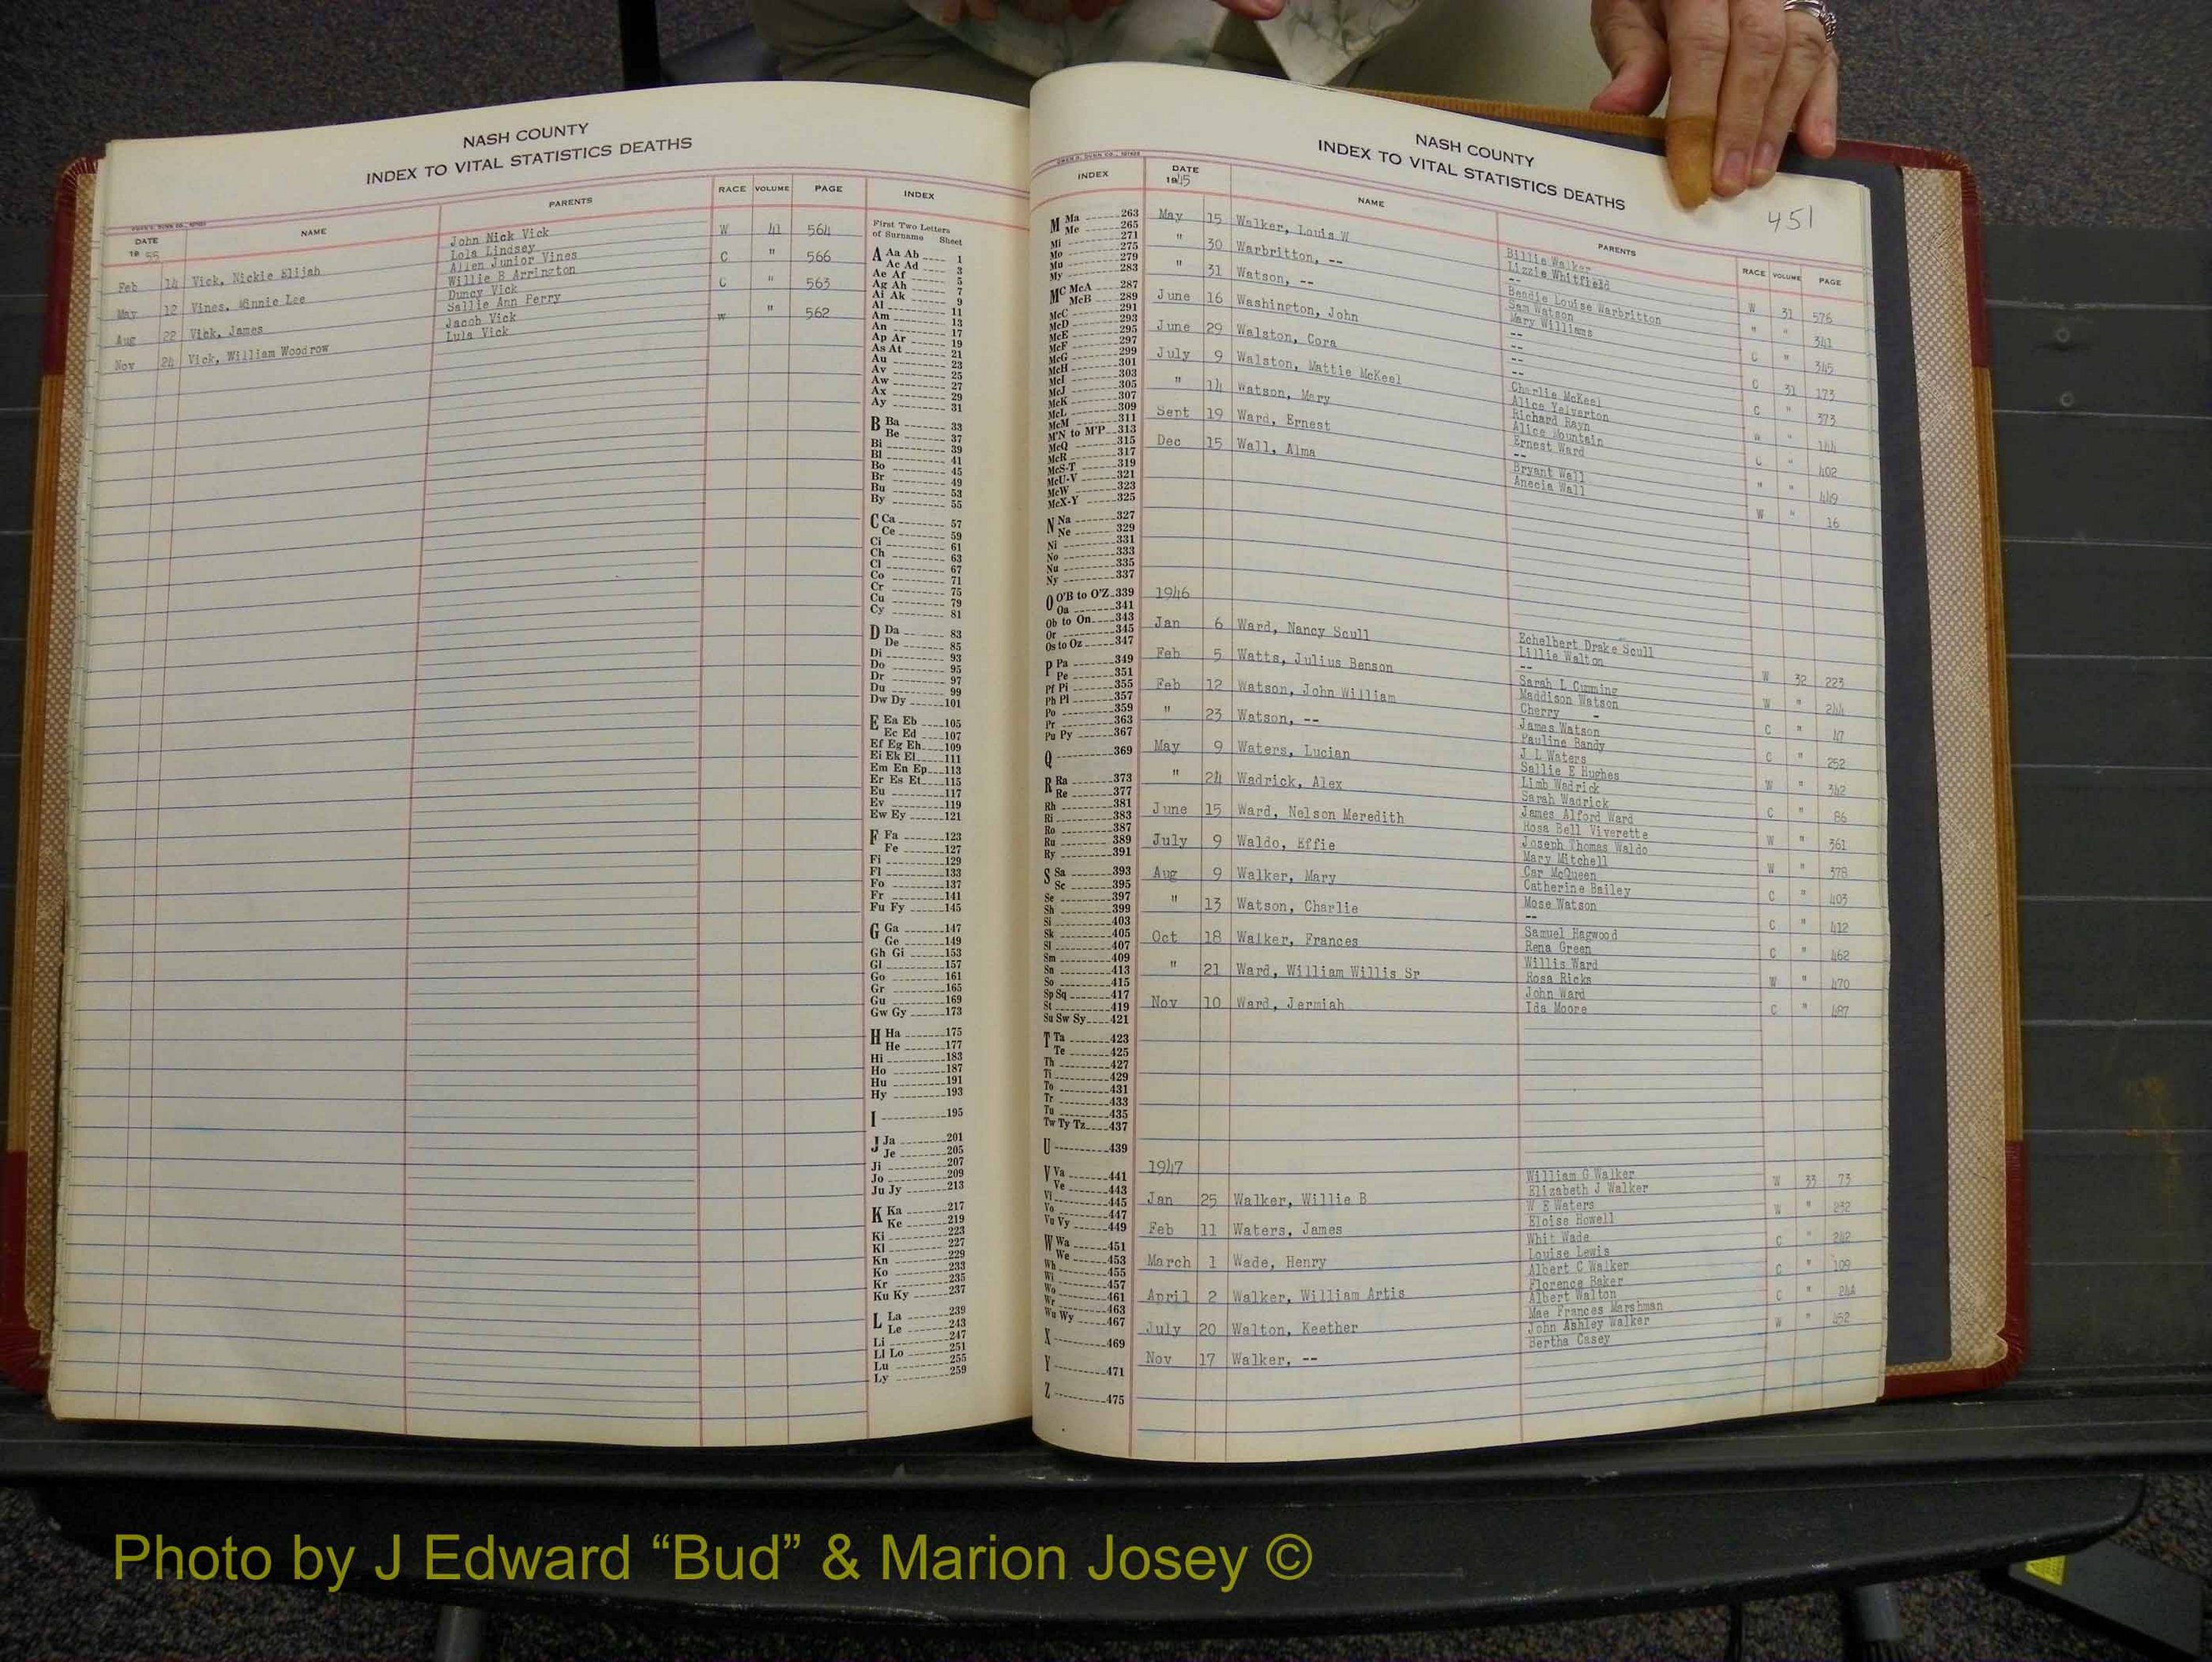 NASH COUNTY
INDEX TO VITAL STATISTICS DEATHS
DATE NAME PARENTS RACE VOLUME PAGE INDEX
19 55
John Nick Vick W 41 564
Feb 14 Vick, Nickie Elijah Lola Lindsey
Allen Junior Vines C " 566
May 12 Vines, Minnie Lee Willie B Arrington
Duncy Vick C " 563
Aug 22 Vick, James Sallie Ann Perry
Jacob Vick W " 562
Nov 24 Vick, William Woodrow Lula Vick
First Two Letters
of Surname Sheet
A Aa Ab 1
Ac Ad 3
Ae Af 5
Ag Ah 7
Ai Ak 9
Al 11
Am 13
An 17
Ap Ar 19
As At 21
Au 23
Av 25
Aw 27
Ax 29
Ay 31
B Ba 33
Be 37
Bi 39
Bl 41
Bo 45
Br 49
Bu 53
By 55
C Ca 57
Ce 59
Ci 61
Ch 63
Cl 67
Co 71
Cr 75
Cu 79
Cy 81
D Da 83
De 85
Di 93
Do 95
Dr 97
Du 99
Dw Dy 101
E Ea Eb 105
Ec Ed 107
Ef Eg Eh 109
Ei Ek El 111
Em En Ep 113
Er Es Et 115
Eu 117
Ev 119
Ew Ey 121
F Fa 123
Fe 127
Fi 129
Fl 133
Fo 137
Fr 141
Fu Fy 145
G Ga 147
Ge 149
Gh Gi 153
Gl 157
Go 161
Gr 165
Gu 169
Gw Gy 173
H Ha 175
He 177
Hi 183
Ho 187
Hu 191
Hy 193
I 195
J Ja 201
Je 205
Ji 207
Jo 209
Ju Jy 213
K Ka 217
Ke 219
Ki 223
Kl 227
Kn 229
Ko 233
Kr 235
Ku Ky 237
L La 239
Le 243
Li 247
Ll Lo 251
Lu 255
Ly 259
NASH COUNTY
INDEX TO VITAL STATISTICS DEATHS
451
INDEX DATE NAME PARENTS RACE VOLUME PAGE
1945
M Ma 263
Me 265
Mi 271
Mo 275
Mu 279
My 283
MC McA 287
McB 289
McC 291
McD 293
McE 295
McF 297
McG 299
McH 301
McI 303
McJ 305
McK 307
McL 309
McM 311
M'N to M'P 313
McQ 315
McR 317
McS-T 319
McU-V 321
McW 323
McX-Y 325
N Na 327
Ne 329
Ni 331
No 333
Nu 335
Ny 337
O O'B to O'Z 339
Oa 341
Ob to On 343
Or 345
Os to Oz 347
P Pa 349
Pe 351
Pf Pi 355
Ph Pl 357
Po 359
Pr 363
Pu Py 367
Q 369
R Ra 373
Re 377
Rh 381
Ri 383
Ro 387
Ru 389
Ry 391
S Sa 393
Sc 395
Se 397
Sh 399
Si 403
Sk 405
Sl 407
Sm 409
Sn 413
So 415
Sp Sq 417
St 419
Su Sw Sy 421
T Ta 423
Te 425
Th 427
Ti 429
To 431
Tr 433
Tu 435
Tw Ty Tz 437
U 439
V Va 441
Ve 443
Vi 445
Vo 447
Vu Vy 449
W Wa 451
We 453
Wh 455
Wi 457
Wo 461
Wr 463
Wu Wy 467
X 469
Y 471
Z 475
May 15 Walker, Louis W Billie Walker W 31 576
Lizzie Whitfield
" 30 Warbritton, -- -- " " 341
Beadie Louise Warbritton
" 31 Watson, -- Sam Watson C " 345
Mary Williams
June 16 Washington, John -- C 31 173
--
June 29 Walston, Cora -- C " 373
--
July 9 Walston, Mattie McKeel Charlie McKeel W " 144
Alice Yelverton
" 14 Watson, Mary Richard Rayn C " 402
Alice Mountain
Sept 19 Ward, Ernest Ernest Ward " " 449
--
Dec 15 Wall, Alma Bryant Wall W " 16
Anecia Wall
1946
Jan 6 Ward, Nancy Scull Echelbert Drake Scull W 32 223
Lillie Walton
Feb 5 Watts, Julius Benson -- W " 244
Sarah L Cumming
Feb 12 Watson, John William Maddison Watson C " 47
Cherry -
" 23 Watson, -- James Watson C " 252
Pauline Bandy
May 9 Waters, Lucian J L Waters W " 342
Sallie E Hughes
" 24 Wadrick, Alex Limb Wadrick C " 86
Sarah Wadrick
June 15 Ward, Nelson Meredith James Alford Ward W " 361
Rosa Bell Viverette
July 9 Waldo, Effie Joseph Thomas Waldo W " 378
Mary Mitchell
Aug 9 Walker, Mary Car McQueen C " 403
Catherine Bailey
" 13 Watson, Charlie Mose Watson C " 412
--
Oct 18 Walker, Frances Samuel Hagwood C " 462
Rena Green
" 21 Ward, William Willis Sr Willis Ward W " 470
Rosa Ricks
Nov 10 Ward, Jermiah John Ward C " 487
Ida Moore
1947
William G Walker W 33 73
Jan 25 Walker, Willie B Elizabeth J Walker
W E Waters W " 232
Feb 11 Waters, James Eloise Howell
Whit Wade C " 242
March 1 Wade, Henry Louise Lewis
Albert C Walker C " 109
April 2 Walker, William Artis Florence Baker
Albert Walton C " 244
July 20 Walton, Keether Mae Frances Marshman
John Ashley Walker W " 452
Nov 17 Walker, -- Bertha Casey
Photo by J Edward “Bud” & Marion Josey ©